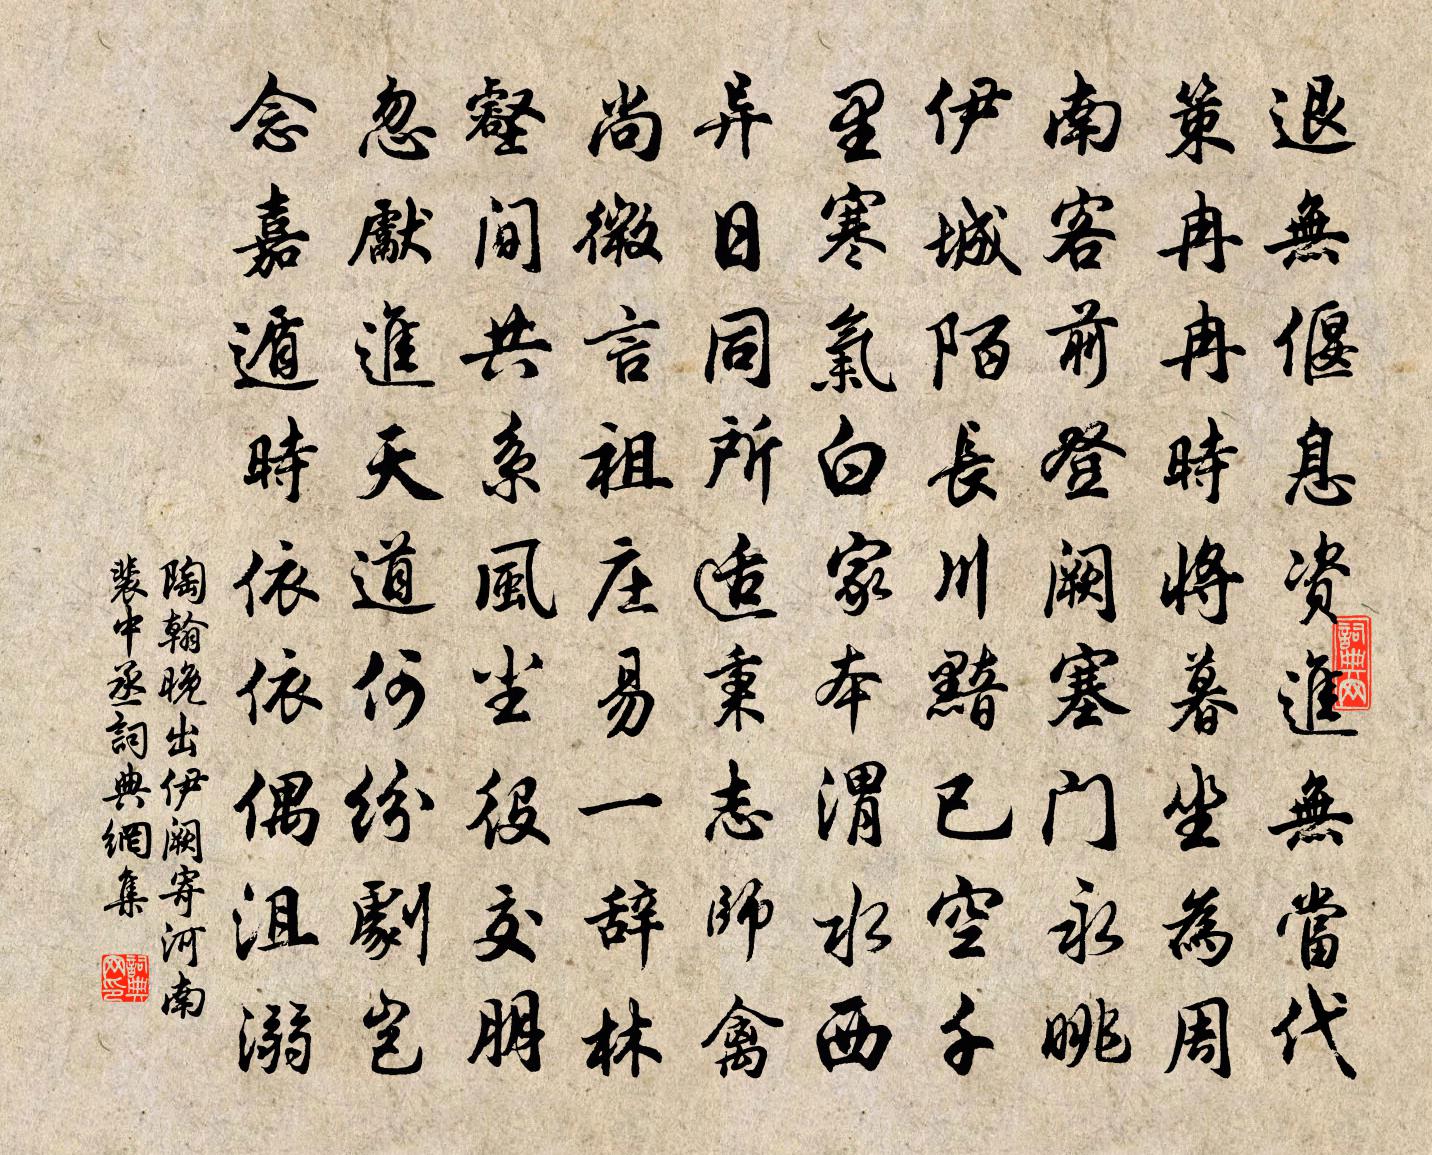 退無偃息資進無當代
策冉冉時將暮坐為周
南客前登阙塞门永眺
伊城陌長川黯已空千
里寒氣白家本渭水西
异日同所适秉志師禽
尚微言祖庄易一辞林
壑间共系風尘役交朋
忽獻進天道何纷劇岂
念嘉遁時依依偶沮溺
陶翰晚出伊阙寄河南
裴中丞詞典網集
詞典网
詞典网印